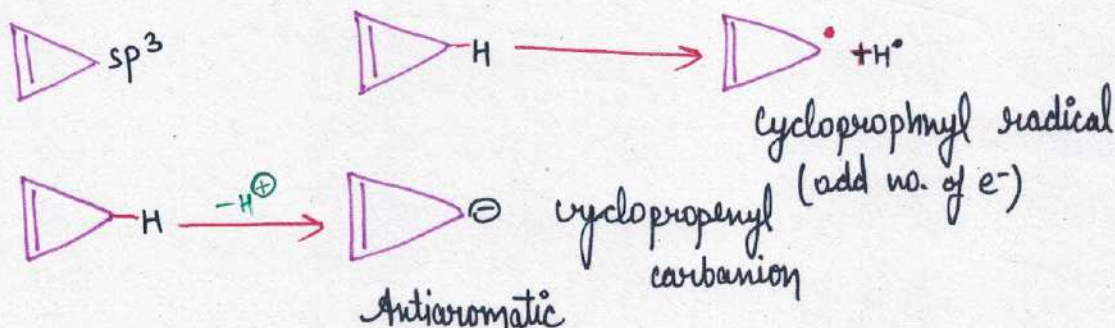 sp³
H
• + H•
cycloprophnyl radical
(odd no. of e-)
H
-H⊕
⊖
cyclopropenyl
carbanion
Antiaromatic